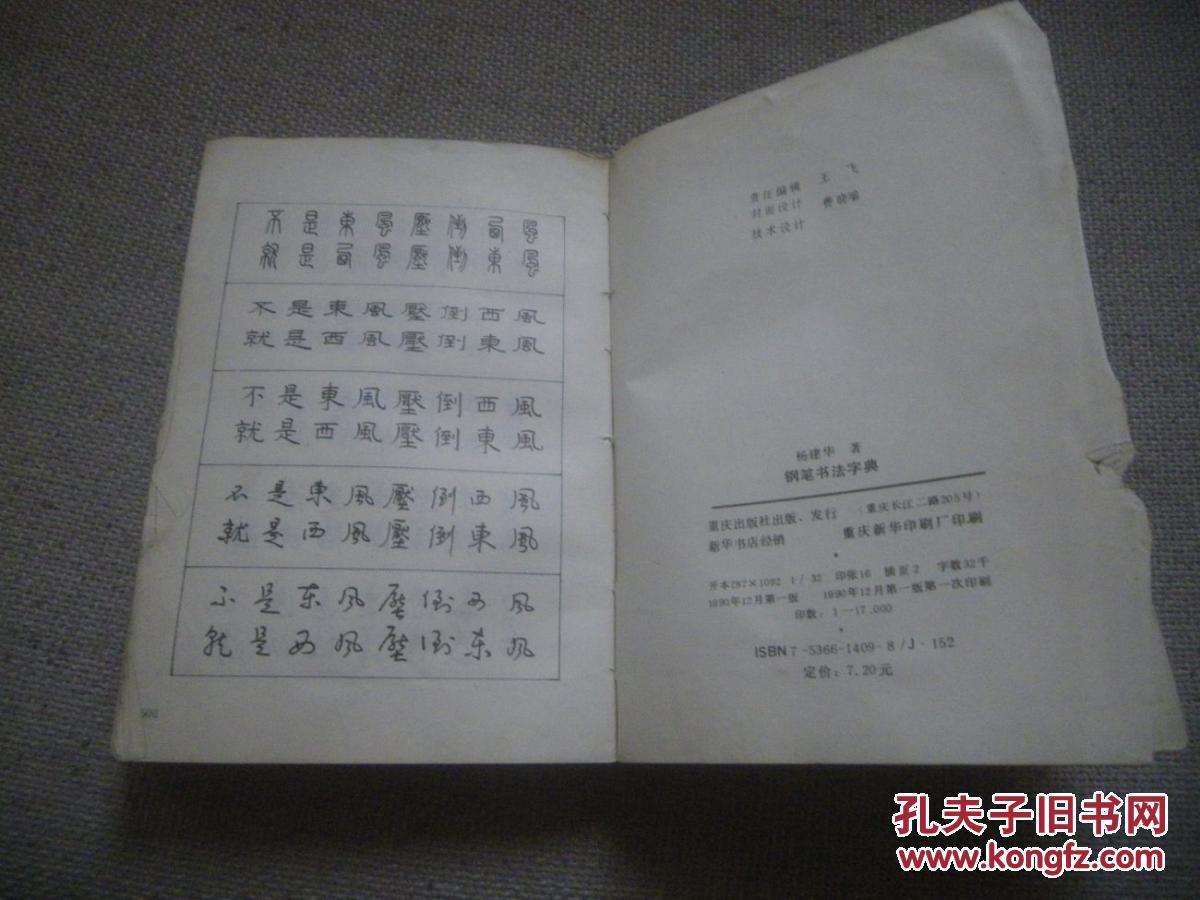 不是東風壓倒西風
就是西風壓倒東風
不是東風壓倒西風
就是西風壓倒東風
不是東風壓倒西風
就是西風壓倒東風
不是東風壓倒西風
就是西風壓倒東風
不是东风壓倒西风
就是西风壓倒东风
责任编辑 王飞
封面设计 费晓瑜
技术设计
杨建华 著
钢笔书法字典
重庆出版社出版、发行 (重庆长江二路205号)
新华书店经销 重庆新华印刷厂印刷
开本787×1092 1/32 印张16 插页2 字数32千
1990年12月第一版 1990年12月第一版第一次印刷
印数：1—17,000
ISBN7-5366-1409-8/J·152
定价：7.20元
孔夫子旧书网
www.kongfz.com